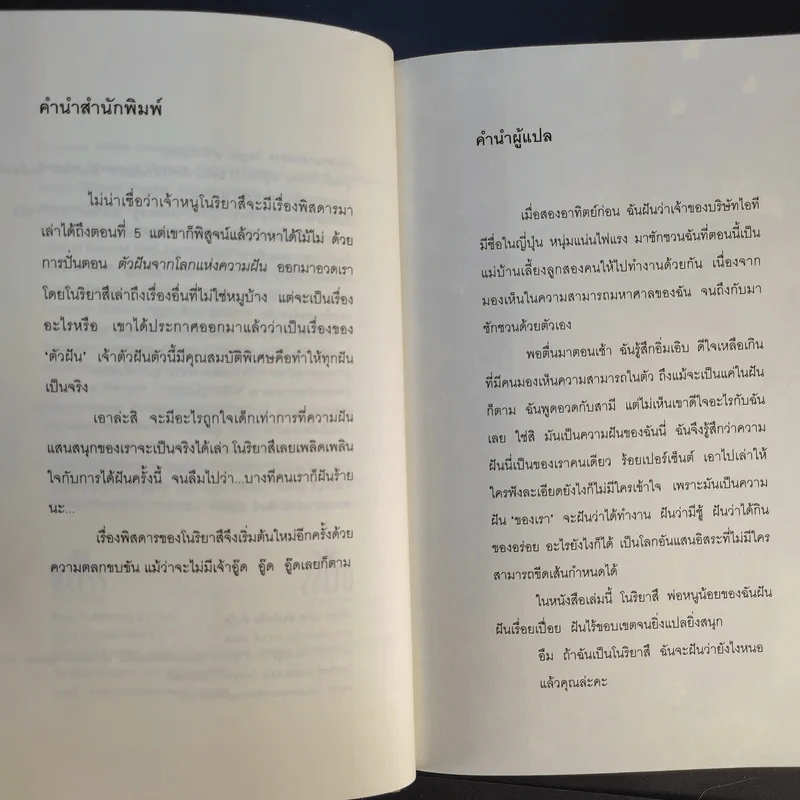 คำนำสำนักพิมพ์
ไม่น่าเชื่อว่าเจ้าหนูโนริยาสึจะมีเรื่องพิสดารมา
เล่าได้ถึงตอนที่ 5 แต่เขาก็พิสูจน์แล้วว่าหาได้โม้ไม่ ด้วย
การปั่นตอน ตัวฝันจากโลกแห่งความฝัน ออกมาอวดเรา
โดยโนริยาสึเล่าถึงเรื่องอื่นที่ไม่ใช่หมูบ้าง แต่จะเป็นเรื่อง
อะไรหรือ เขาได้ประกาศออกมาแล้วว่าเป็นเรื่องของ
‘ตัวฝัน’ เจ้าตัวฝันตัวนี้มีคุณสมบัติพิเศษคือทำให้ทุกฝัน
เป็นจริง
เอาล่ะสิ จะมีอะไรถูกใจเด็กเท่าการที่ความฝัน
แสนสนุกของเราจะเป็นจริงได้เล่า โนริยาสึเลยเพลิดเพลิน
ใจกับการได้ฝันครั้งนี้ จนลืมไปว่า...บางทีคนเราก็ฝันร้าย
นะ...
เรื่องพิสดารของโนริยาสึจึงเริ่มต้นใหม่อีกครั้งด้วย
ความตลกขบขัน แม้ว่าจะไม่มีเจ้าอู๊ด อู๊ด อู๊ดเลยก็ตาม
คำนำผู้แปล
เมื่อสองอาทิตย์ก่อน ฉันฝันว่าเจ้าของบริษัทไอที
มีชื่อในญี่ปุ่น หนุ่มแน่นไฟแรง มาชักชวนฉันที่ตอนนี้เป็น
แม่บ้านเลี้ยงลูกสองคนให้ไปทำงานด้วยกัน เนื่องจาก
มองเห็นในความสามารถมหาศาลของฉัน จนถึงกับมา
ชักชวนด้วยตัวเอง
พอตื่นมาตอนเช้า ฉันรู้สึกอิ่มเอิบ ดีใจเหลือเกิน
ที่มีคนมองเห็นความสามารถในตัว ถึงแม้จะเป็นแค่ในฝัน
ก็ตาม ฉันพูดอวดกับสามี แต่ไม่เห็นเขาดีใจอะไรกับฉัน
เลย ใช่สิ มันเป็นความฝันของฉันนี่ ฉันจึงรู้สึกว่าความ
ฝันนี่เป็นของเราคนเดียว ร้อยเปอร์เซ็นต์ เอาไปเล่าให้
ใครฟังละเอียดยังไงก็ไม่มีใครเข้าใจ เพราะมันเป็นความ
ฝัน ‘ของเรา’ จะฝันว่าได้ทำงาน ฝันว่ามีชู้ ฝันว่าได้กิน
ของอร่อย อะไรยังไงก็ได้ เป็นโลกอันแสนอิสระที่ไม่มีใคร
สามารถขีดเส้นกำหนดได้
ในหนังสือเล่มนี้ โนริยาสึ พ่อหนูน้อยของฉันฝัน
ฝันเรื่อยเปื่อย ฝันไร้ขอบเขตจนยิ่งแปลยิ่งสนุก
อืม ถ้าฉันเป็นโนริยาสึ ฉันจะฝันว่ายังไงหนอ
แล้วคุณล่ะคะ